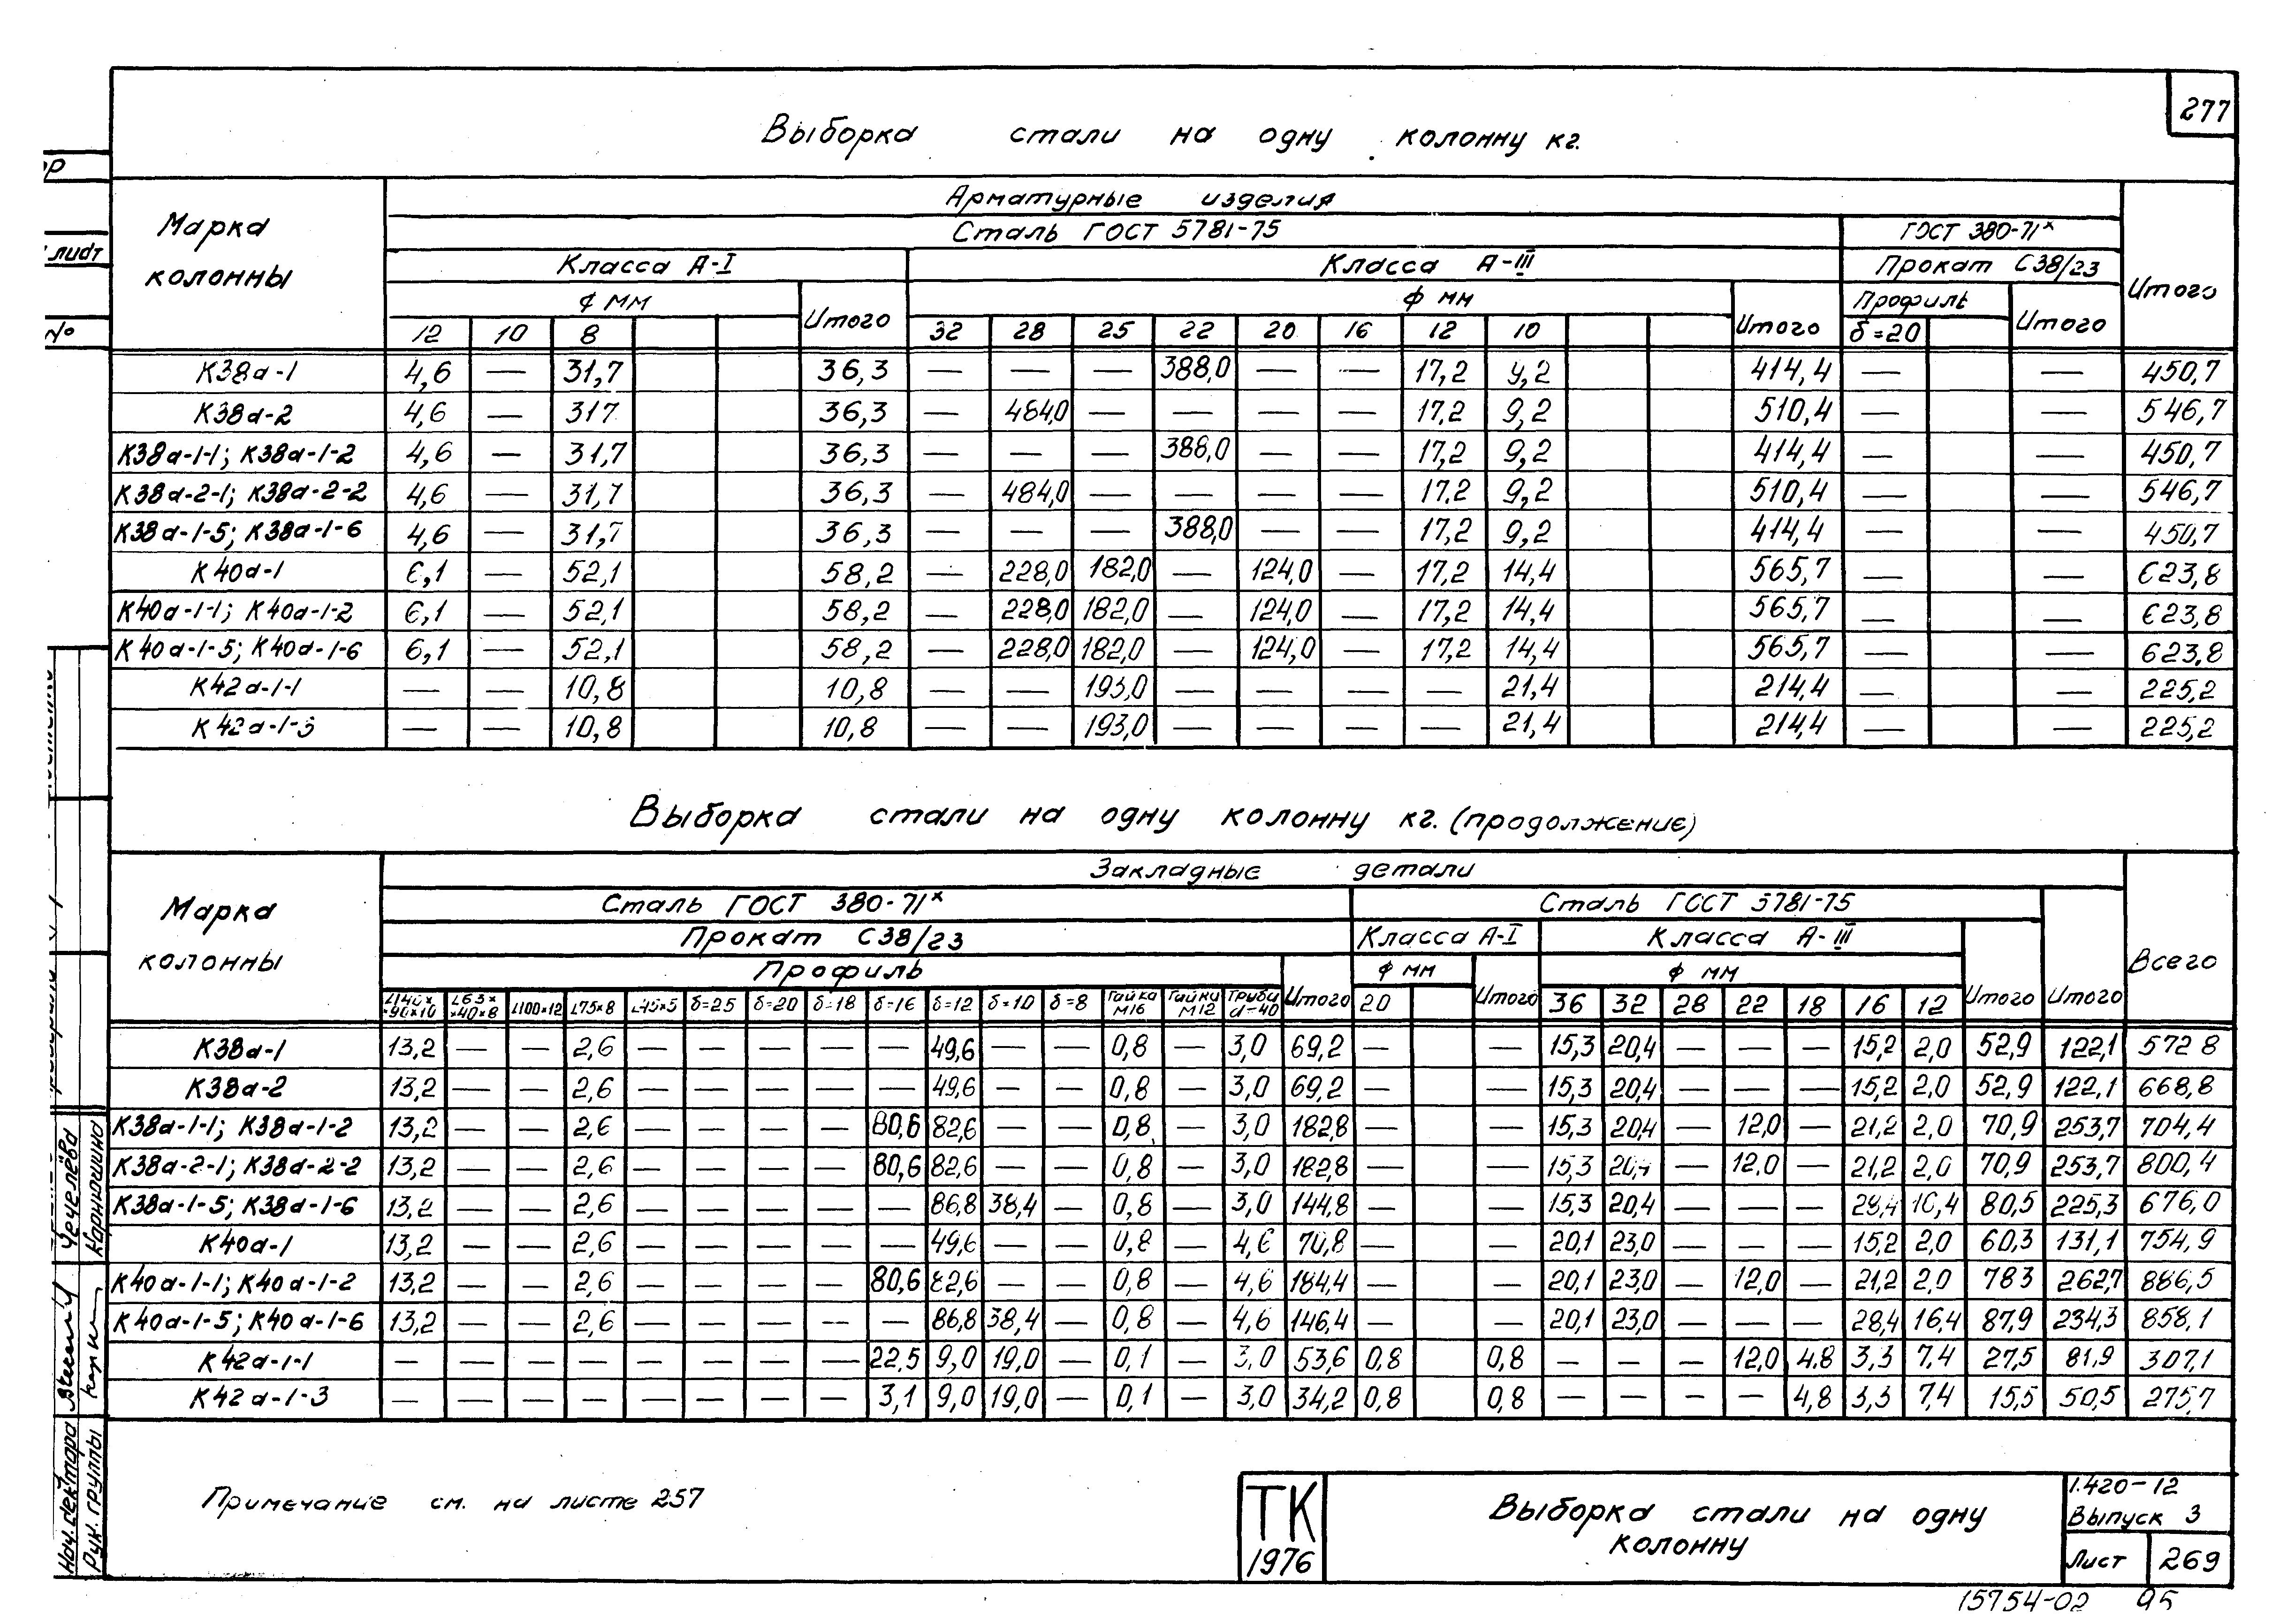 277
Выборка стали на одну колонну кг.
Марка колонны
Арматурные изделия
Итого
Сталь ГОСТ 5781-75
ГОСТ 380-71х
Класса А-I
Класса А-III
Прокат С38/23
ф мм
Итого
ф мм
Итого
Профиль
Итого
12 10 8 32 28 25 22 20 16 12 10 δ=20
К38а-1 4,6 — 31,7 36,3 — — — 388,0 — — 17,2 9,2 414,4 — — 450,7
К38а-2 4,6 — 317 36,3 — 484,0 — — — — 17,2 9,2 510,4 — — 546,7
К38а-1-1; К38а-1-2 4,6 — 31,7 36,3 — — — 388,0 — — 17,2 9,2 414,4 — — 450,7
К38а-2-1; К38а-2-2 4,6 — 31,7 36,3 — 484,0 — — — — 17,2 9,2 510,4 — — 546,7
К38а-1-5; К38а-1-6 4,6 — 31,7 36,3 — — — 388,0 — — 17,2 9,2 414,4 — — 450,7
К40а-1 6,1 — 52,1 58,2 — 228,0 182,0 — 124,0 — 17,2 14,4 565,7 — — 623,8
К40а-1-1; К40а-1-2 6,1 — 52,1 58,2 — 228,0 182,0 — 124,0 — 17,2 14,4 565,7 — — 623,8
К40а-1-5; К40а-1-6 6,1 — 52,1 58,2 — 228,0 182,0 — 124,0 — 17,2 14,4 565,7 — — 623,8
К42а-1-1 — — 10,8 10,8 — — 193,0 — — — — 21,4 214,4 — — 225,2
К42а-1-3 — — 10,8 10,8 — — 193,0 — — — — 21,4 214,4 — — 225,2
Выборка стали на одну колонну кг. (продолжение)
Марка колонны
Закладные детали
Всего
Сталь ГОСТ 380-71х
Сталь ГОСТ 5781-75
Итого
Прокат С38/23
Класса А-I
Класса А-III
Итого
Профиль
Итого
ф мм
Итого
ф мм
L140××90×10 L63××40×8 L100×12 L75×8 L45×5 δ=25 δ=20 δ=18 δ=16 δ=12 δ=10 δ=8 Гайка М16 Гайки М12 Труба d=40 20 36 32 28 22 18 16 12
К38а-1 13,2 — — 2,6 — — — — — 49,6 — — 0,8 — 3,0 69,2 — — 15,3 20,4 — — — 15,2 2,0 52,9 122,1 572 8
К38а-2 13,2 — — 2,6 — — — — — 49,6 — — 0,8 — 3,0 69,2 — — 15,3 20,4 — — — 15,2 2,0 52,9 122,1 668,8
К38а-1-1; К38а-1-2 13,2 — — 2,6 — — — — 80,6 82,6 — — 0,8 — 3,0 182,8 — — 15,3 20,4 — 12,0 — 21,2 2,0 70,9 253,7 704,4
К38а-2-1; К38а-2-2 13,2 — — 2,6 — — — — 80,6 82,6 — — 0,8 — 3,0 182,8 — — 15,3 20,4 — 12,0 — 21,2 2,0 70,9 253,7 800,4
К38а-1-5; К38а-1-6 13,2 — — 2,6 — — — — — 86,8 38,4 — 0,8 — 3,0 144,8 — — 15,3 20,4 — — — 28,4 16,4 80,5 225,3 676,0
К40а-1 13,2 — — 2,6 — — — — — 49,6 — — 0,8 — 4,6 70,8 — — 20,1 23,0 — — — 15,2 2,0 60,3 131,1 754,9
К40а-1-1; К40а-1-2 13,2 — — 2,6 — — — — 80,6 82,6 — — 0,8 — 4,6 184,4 — — 20,1 23,0 — 12,0 — 21,2 2,0 783 262,7 886,5
К40а-1-5; К40а-1-6 13,2 — — 2,6 — — — — — 86,8 38,4 — 0,8 — 4,6 146,4 — — 20,1 23,0 — — — 28,4 16,4 87,9 234,3 858,1
К42а-1-1 — — — — — — — — 22,5 9,0 19,0 — 0,1 — 3,0 53,6 0,8 0,8 — — — 12,0 4,8 3,3 7,4 27,5 81,9 307,1
К42а-1-3 — — — — — — — — 3,1 9,0 19,0 — 0,1 — 3,0 34,2 0,8 0,8 — — — — 4,8 3,3 7,4 15,5 50,5 275,7
Примечание см. на листе 257
ТК
1976
Выборка стали на одну
колонну
1.420-12
Выпуск 3
Лист 269
15754-02 95
лист
№
Нач. сектора
Чечелёва
Рук. группы
Карнюшина